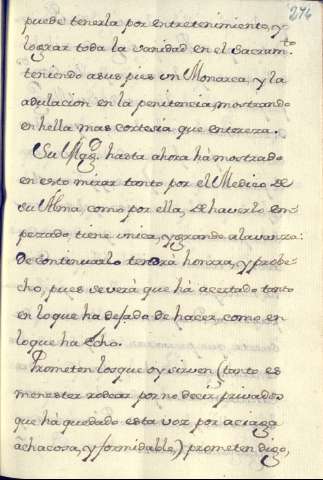 274
puede tenerla por entretenimiento, y
lograr toda la vanidad en el Sacramto
teniendo asus pies un Monarca, y la
adulacion en la penitencia, mostrando
en hella mas cortesia que entereza.
Su Magd. hasta ahora há mostrado
en esto mirar tanto por el Medico de
su Alma, como por ella, de haverlo em-
pezado tiene unica, y grande alavanza:
de continuarlo tendrá honrra, y probe-
cho, pues severá que há acertado tanto
en loque ha dejado de hacer, como en
loque ha echo.
Prometen losque oy sirven (tanto es
menester rodear por no decir privados
que há quedado esta voz por aciaga
achacosa, y formidable,) prometen digo,